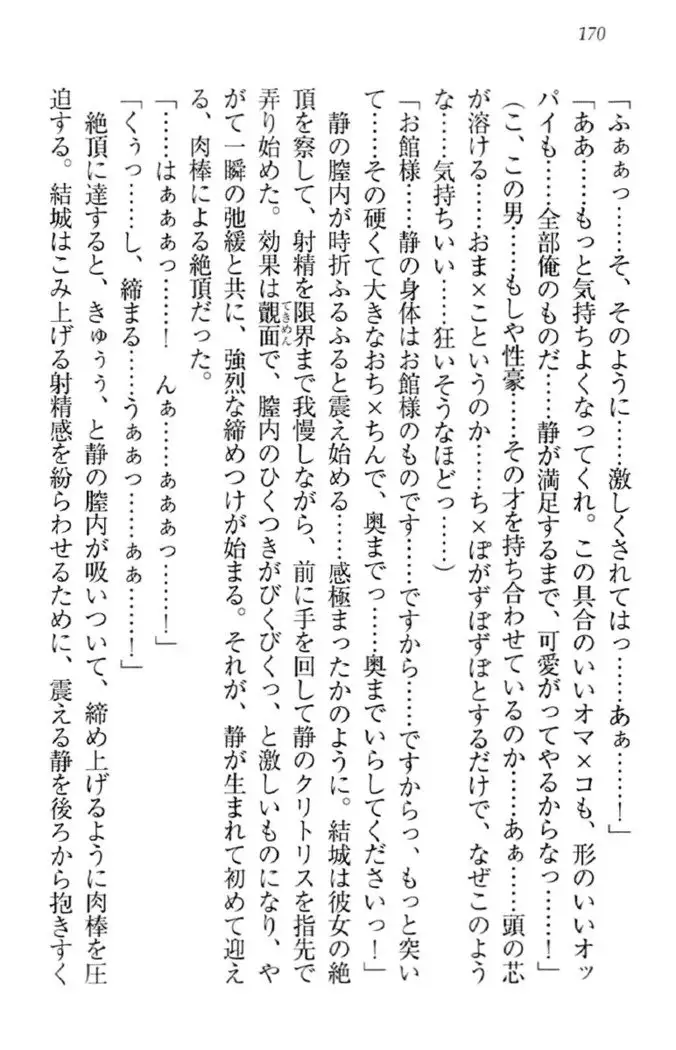 170
「ふぁぁっ……そ、そのように……激しくされてはっ……あぁ……！」
「ああ……もっと気持ちよくなってくれ。この具合のいいオマ×コも、形のいいオッ
パイも……全部俺のものだ……静が満足するまで、可愛がってやるからなっ……！」
(こ、この男……もしや性豪……その才を持ち合わせているのか……あぁ……頭の芯
が溶ける……おま×こというのか……ち×ぽがずぼずぼとするだけで、なぜこのよう
な……気持ちいい……狂いそうなほどっ……)
「お館様……静の身体はお館様のものです……ですから……ですからっ、もっと突い
て……その硬くて大きなおち×ちんで、奥までっ……奥までいらしてくださいっ！」
　静の膣内が時折ふるふると震え始める……感極まったかのように。結城は彼女の絶
頂を察して、射精を限界まで我慢しながら、前に手を回して静のクリトリスを指先で
弄り始めた。効果は覿面てきめんで、膣内のひくつきがびくびくっ、と激しいものになり、や
がて一瞬の弛緩と共に、強烈な締めつけが始まる。それが、静が生まれて初めて迎え
る、肉棒による絶頂だった。
「……はぁぁぁっ……！　んぁ……ぁぁぁっ……！」
「くぅっ……し、締まる……うぁぁっ……ぁぁ……！」
　絶頂に達すると、きゅうぅ、と静の膣内が吸いついて、締め上げるように肉棒を圧
迫する。結城はこみ上げる射精感を紛らわせるために、震える静を後ろから抱きすく